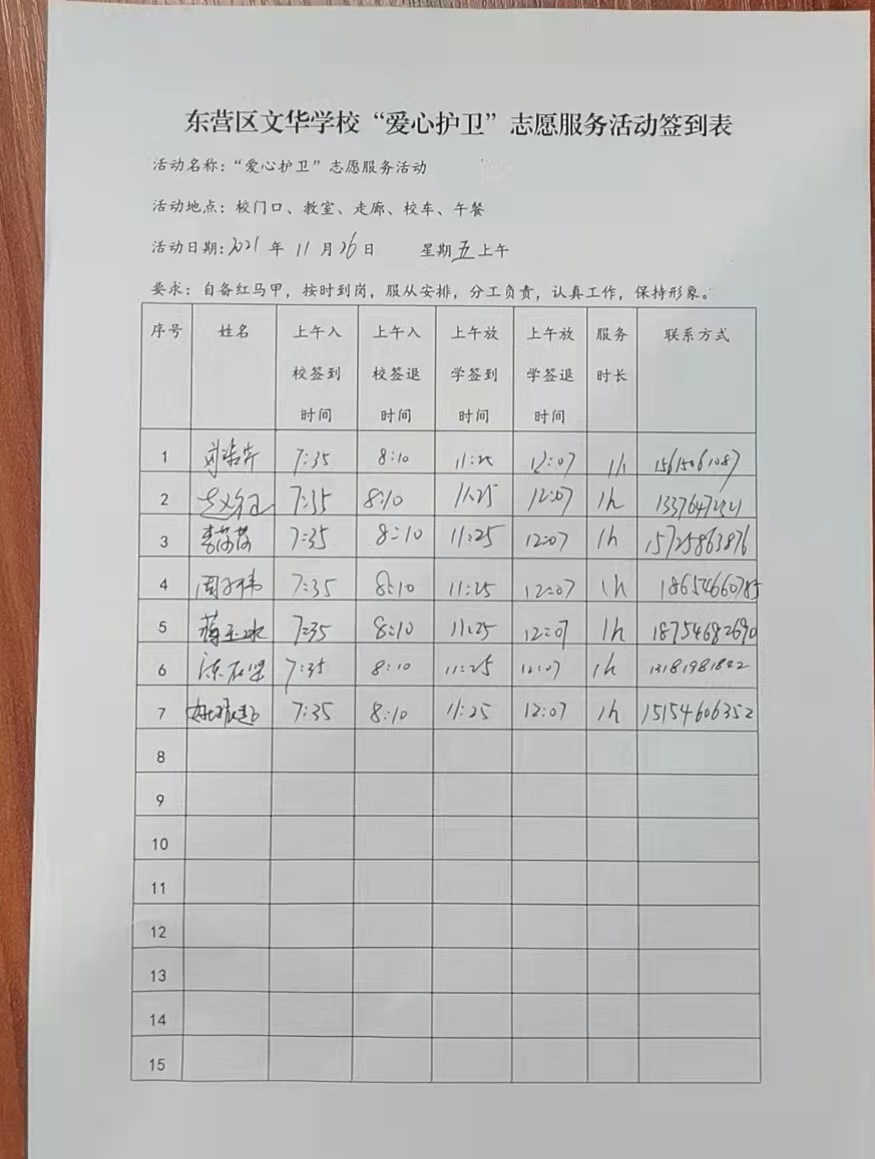 东营区文华学校“爱心护卫”志愿服务活动签到表
活动名称：“爱心护卫”志愿服务活动
活动地点：校门口、教室、走廊、校车、午餐
活动日期：2021年11月26日 星期五上午
要求：自备红马甲，按时到岗，服从安排，分工负责，认真工作，保持形象。
序号 姓名 上午入校签到时间 上午入校签退时间 上午放学签到时间 上午放学签退时间 服务时长 联系方式
1 7:35 8:10 11:25 12:07 1h 15615061087
2 7:35 8:10 11:25 12:07 1h
3 李茹茹 7:35 8:10 11:25 12:07 1h 15725863876
4 周子伟 7:35 8:10 11:25 12:07 1h 18654660785
5 蒋玉冰 7:35 8:10 11:25 12:07 1h 18754682690
6 7:35 8:10 11:25 12:07 1h 13181981822
7 7:35 8:10 11:25 12:07 1h 15154606352
8
9
10
11
12
13
14
15